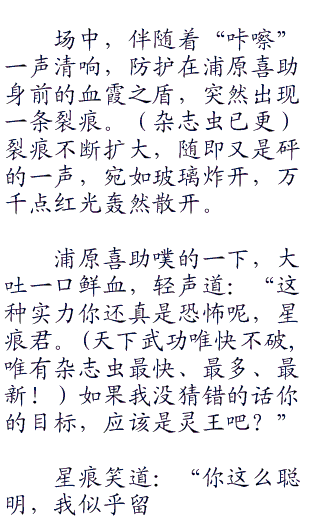 场中，伴随着“咔嚓”
一声清响，防护在浦原喜助
身前的血霞之盾，突然出现
一条裂痕。（杂志虫已更）
裂痕不断扩大，随即又是砰
的一声，宛如玻璃炸开，万
千点红光轰然散开。
浦原喜助噗的一下，大
吐一口鲜血，轻声道：“这
种实力你还真是恐怖呢，星
痕君。(天下武功唯快不破,
唯有杂志虫最快、最多、最
新！）如果我没猜错的话你
的目标，应该是灵王吧？”
星痕笑道：“你这么聪
明，我似乎留